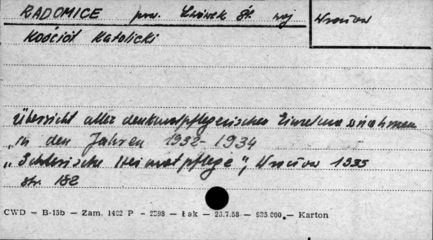 RADOMICE pow. Lwówek Śl. woj Wrocław
Kościół Katolicki
Übersicht aller denkmalpflegerischen Einzelmassnahmen
in den Jahren 1932-1934
"Schlesische Heimatpflege", Wrocław 1935
str. 182
CWD - B-15b - Zam. 1402 P - 2298 - Łak - 23.7.58 - 925.000.- Karton